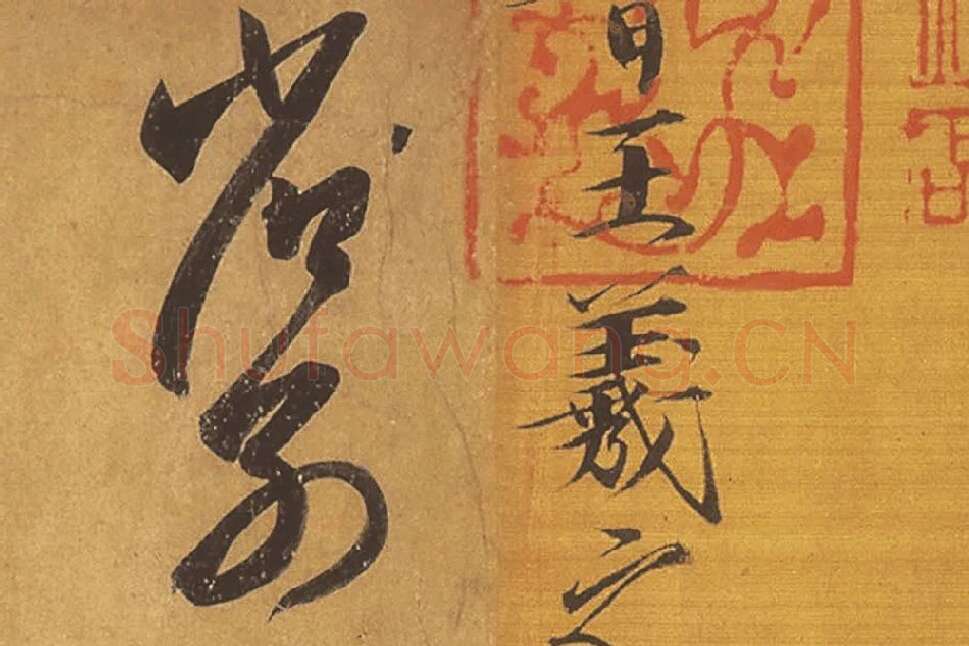 晉王羲之
省別
Shufawang.CN